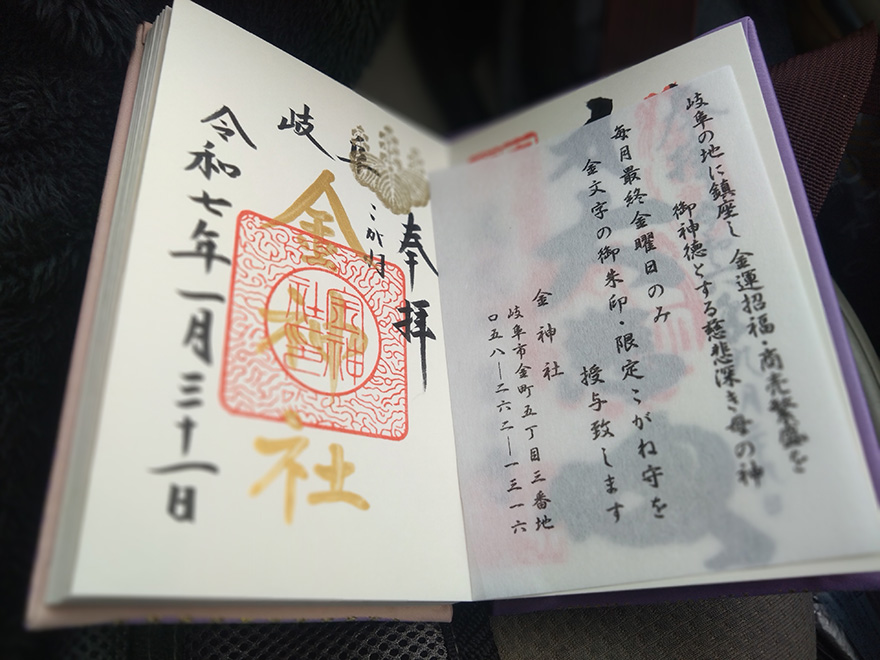 岐阜の地に鎮座し 金運招福・商売繁盛を
御神徳とする慈悲深き母の神
毎月最終金曜日のみ
金文字の御朱印・限定こがね守を
授与致します
金神社
岐阜市金町五丁目三番地
〇五八―二六二―一三一六
奉拝
岐阜
金神社
令和七年一月三十一日